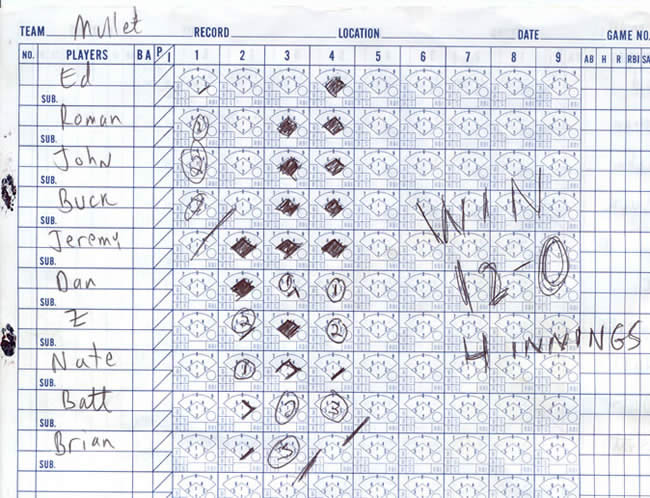 TEAM Mullet RECORD LOCATION DATE GAME NO.
NO. PLAYERS B A P/I 1 2 3 4 5 6 7 8 9 AB H R RBI SA
Ed
SUB.
Roman 1
SUB.
John 2
SUB.
Buck
SUB.
WIN
Jeremy
SUB.
Dan 1 1
SUB.
12-0
Z 2 2
SUB.
4 INNINGS
Nate 1
SUB.
Batt 2 3
SUB.
Brian 3
SUB.